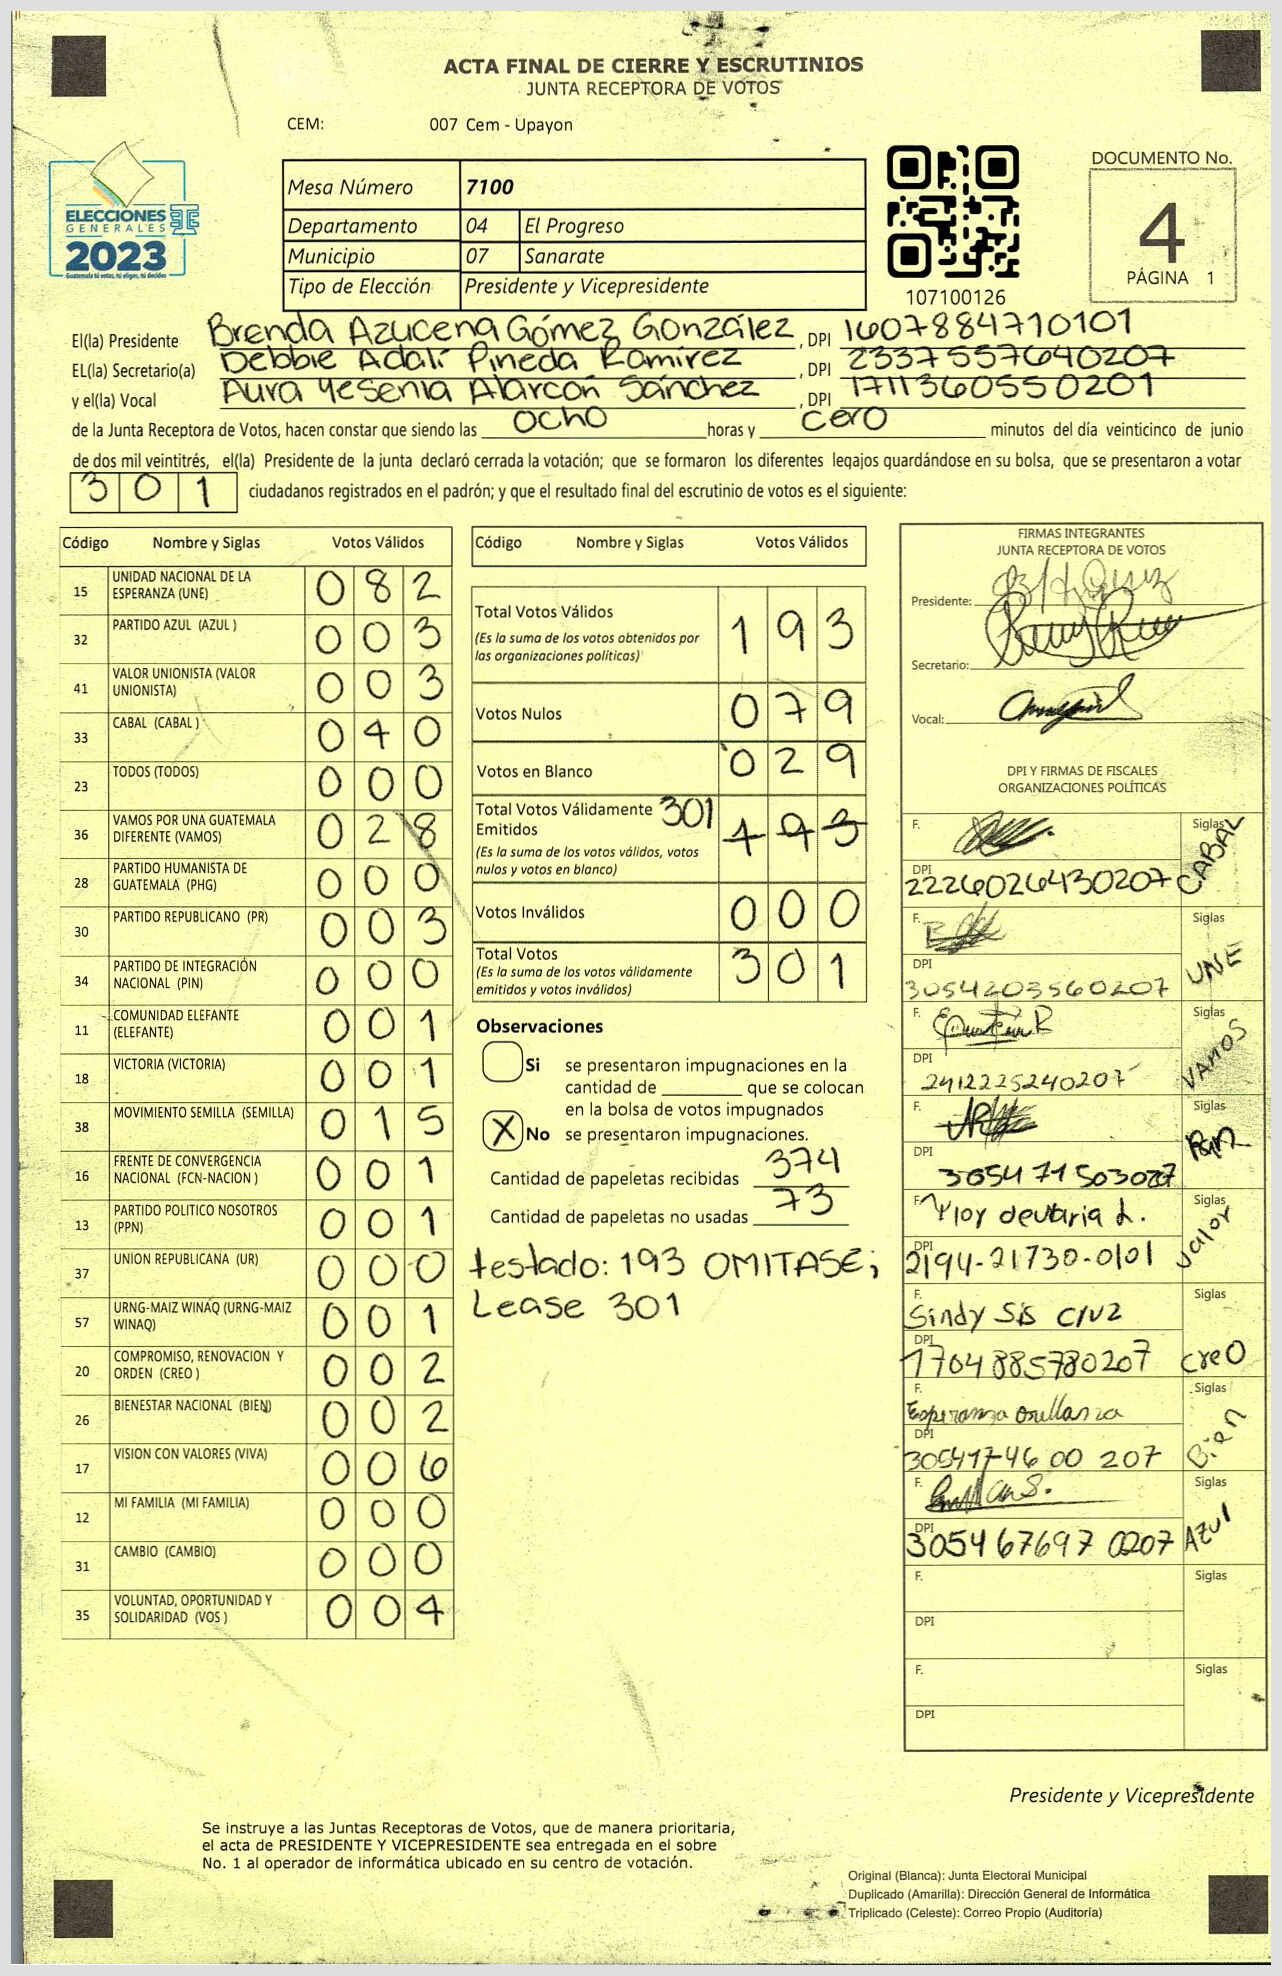 ACTA FINAL DE CIERRE Y ESCRUTINIOS
JUNTA RECEPTORA DE VOTOS
CEM: 007 Cem - Upayon
ELECCIONES
GENERALES
2023
Guatemala tú votas, tú eliges, tú decides
Mesa Número 7100
Departamento 04 El Progreso
Municipio 07 Sanarate
Tipo de Elección Presidente y Vicepresidente
107100126
DOCUMENTO No.
4
PÁGINA 1
El(la) Presidente Brenda Azucena Gómez González, DPI 1607884710101
EL(la) Secretario(a) Debbie Adalí Pineda Ramírez, DPI 2337557640207
y el(la) Vocal Aura Yesenia Alarcón Sánchez, DPI 1711360550201
de la Junta Receptora de Votos, hacen constar que siendo las ocho horas y cero minutos del día veinticinco de junio
de dos mil veintitrés, el(la) Presidente de la junta declaró cerrada la votación; que se formaron los diferentes legajos guardándose en su bolsa, que se presentaron a votar
301 ciudadanos registrados en el padrón; y que el resultado final del escrutinio de votos es el siguiente:
Código Nombre y Siglas Votos Válidos
15 UNIDAD NACIONAL DE LA ESPERANZA (UNE) 082
32 PARTIDO AZUL (AZUL ) 003
41 VALOR UNIONISTA (VALOR UNIONISTA) 003
33 CABAL (CABAL ) 040
23 TODOS (TODOS) 000
36 VAMOS POR UNA GUATEMALA DIFERENTE (VAMOS) 028
28 PARTIDO HUMANISTA DE GUATEMALA (PHG) 000
30 PARTIDO REPUBLICANO (PR) 003
34 PARTIDO DE INTEGRACIÓN NACIONAL (PIN) 000
11 COMUNIDAD ELEFANTE (ELEFANTE) 001
18 VICTORIA (VICTORIA) 001
38 MOVIMIENTO SEMILLA (SEMILLA) 015
16 FRENTE DE CONVERGENCIA NACIONAL (FCN-NACION ) 001
13 PARTIDO POLITICO NOSOTROS (PPN) 001
37 UNION REPUBLICANA (UR) 000
57 URNG-MAIZ WINAQ (URNG-MAIZ WINAQ) 001
20 COMPROMISO, RENOVACION Y ORDEN (CREO ) 002
26 BIENESTAR NACIONAL (BIEN) 002
17 VISION CON VALORES (VIVA) 006
12 MI FAMILIA (MI FAMILIA) 000
31 CAMBIO (CAMBIO) 000
35 VOLUNTAD, OPORTUNIDAD Y SOLIDARIDAD (VOS ) 004
Código Nombre y Siglas Votos Válidos
Total Votos Válidos 193
(Es la suma de los votos obtenidos por
las organizaciones politicas)
Votos Nulos 079
Votos en Blanco 029
Total Votos Válidamente Emitidos 301 193
(Es la suma de los votos válidos, votos
nulos y votos en blanco)
Votos Inválidos 000
Total Votos 301
(Es la suma de los votos válidamente
emitidos y votos inválidos)
Observaciones
Si se presentaron impugnaciones en la
cantidad de ________ que se colocan
en la bolsa de votos impugnados
X No se presentaron impugnaciones.
Cantidad de papeletas recibidas 374
Cantidad de papeletas no usadas 73
testado: 193 OMITASE;
Lease 301
FIRMAS INTEGRANTES
JUNTA RECEPTORA DE VOTOS
Presidente:
Secretario:
Vocal:
DPI Y FIRMAS DE FISCALES
ORGANIZACIONES POLÍTICAS
F. Siglas CABAL
DPI 2226026430207
F. Siglas UNE
DPI 3054203560207
F. Siglas VAMOS
DPI 2412225240207
F. Siglas
DPI
F. Siglas Valor
DPI 2194-21730-0101
F. Sindy Sis Cruz Siglas CREO
DPI 1704885780207
F. Esperanza Orellana Siglas Bien
DPI 3054174600 207
F. Siglas Azul
DPI 3054676970207
F. Siglas
DPI
F. Siglas
DPI
Presidente y Vicepresidente
Se instruye a las Juntas Receptoras de Votos, que de manera prioritaria,
el acta de PRESIDENTE Y VICEPRESIDENTE sea entregada en el sobre
No. 1 al operador de informática ubicado en su centro de votación.
Original (Blanca): Junta Electoral Municipal
Duplicado (Amarilla): Dirección General de Informática
Triplicado (Celeste): Correo Propio (Auditoría)